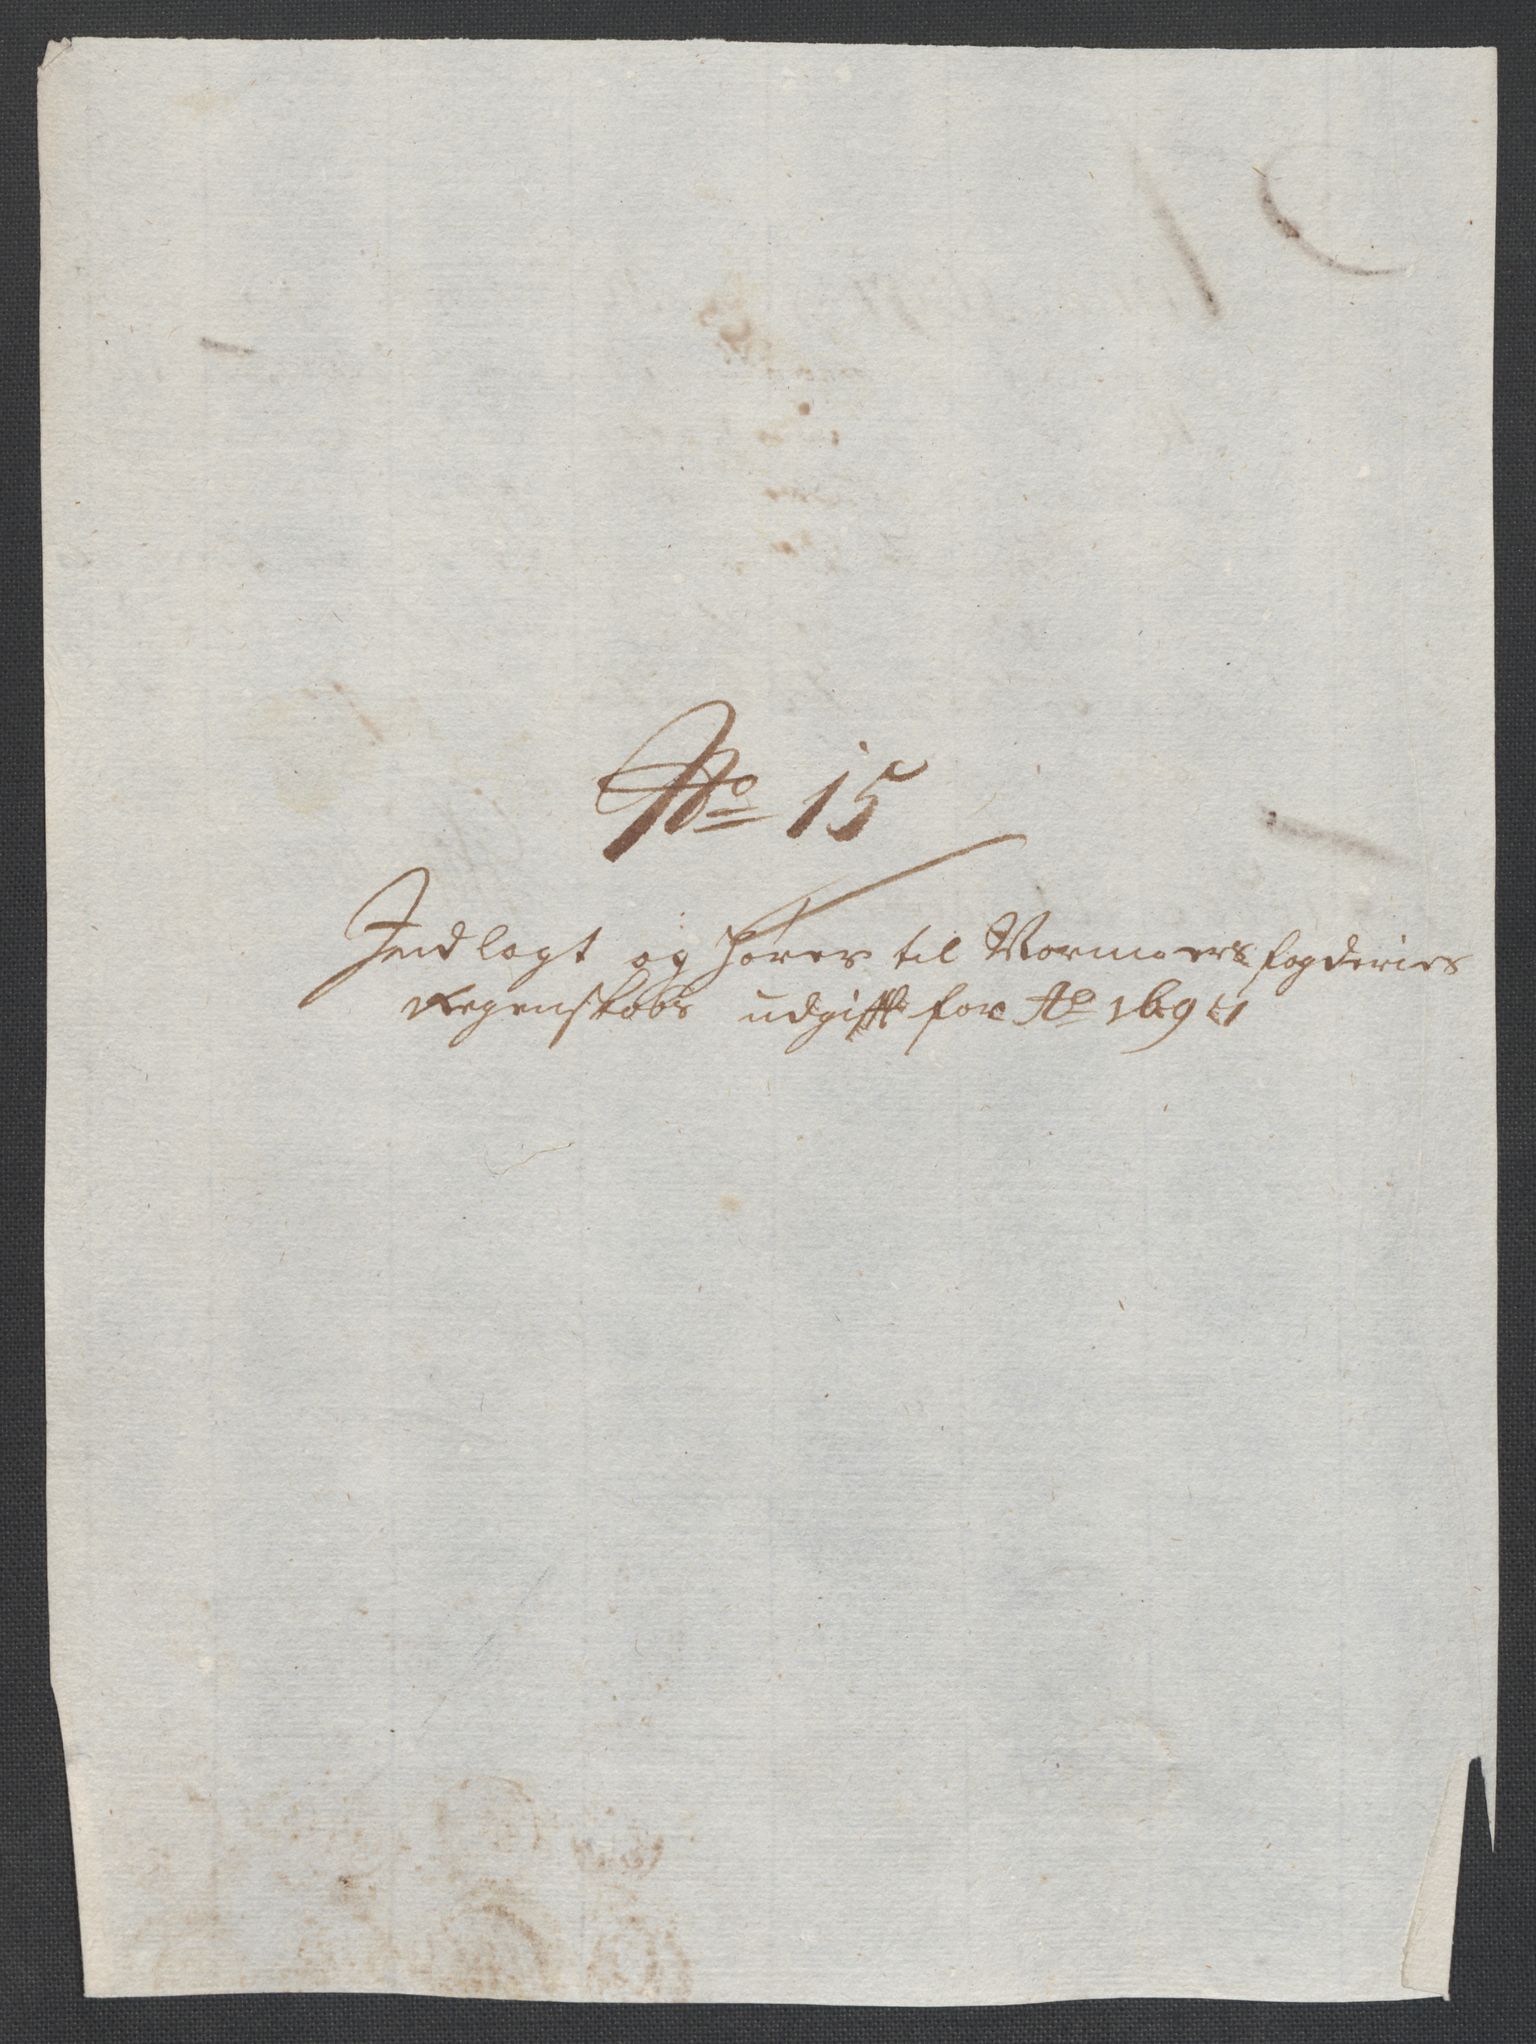 No 15
Indlagt og hører til Nordmøers fogderies
Regenskabs udgifft for Ao 1694